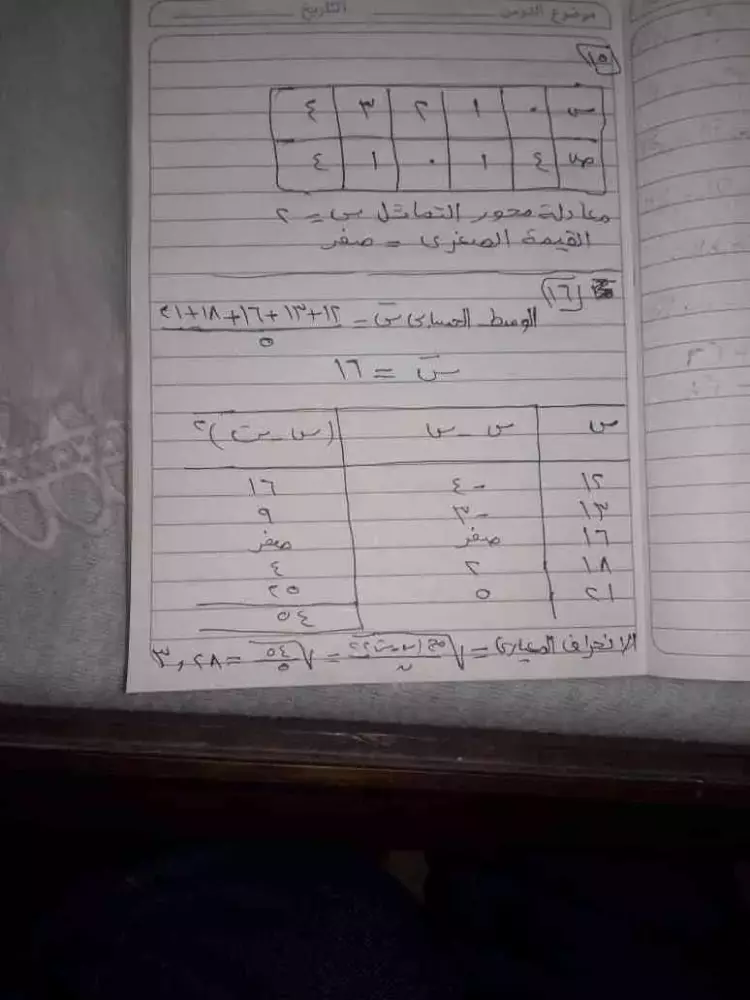 موضوع الدرس التاريخ
١٥
س ٠ ١ ٢ ٣ ٤
ص ٤ ١ ٠ ١ ٤
معادلة محور التماثل س = ٢
القيمة الصغرى = صفر
١٦
الوسط الحسابى س̄ = ١٢+١٣+١٦+١٨+٢١
٥
س̄ = ١٦
س س - س (س - س̄)٢
١٢ -٤ ١٦
١٣ -٣ ٩
١٦ صفر صفر
١٨ ٢ ٤
٢١ ٥ ٢٥
٥٤
الانحراف المعيارى = √مج(س-س̄)٢/ن = √٥٤/٥ = ٣,٢٨